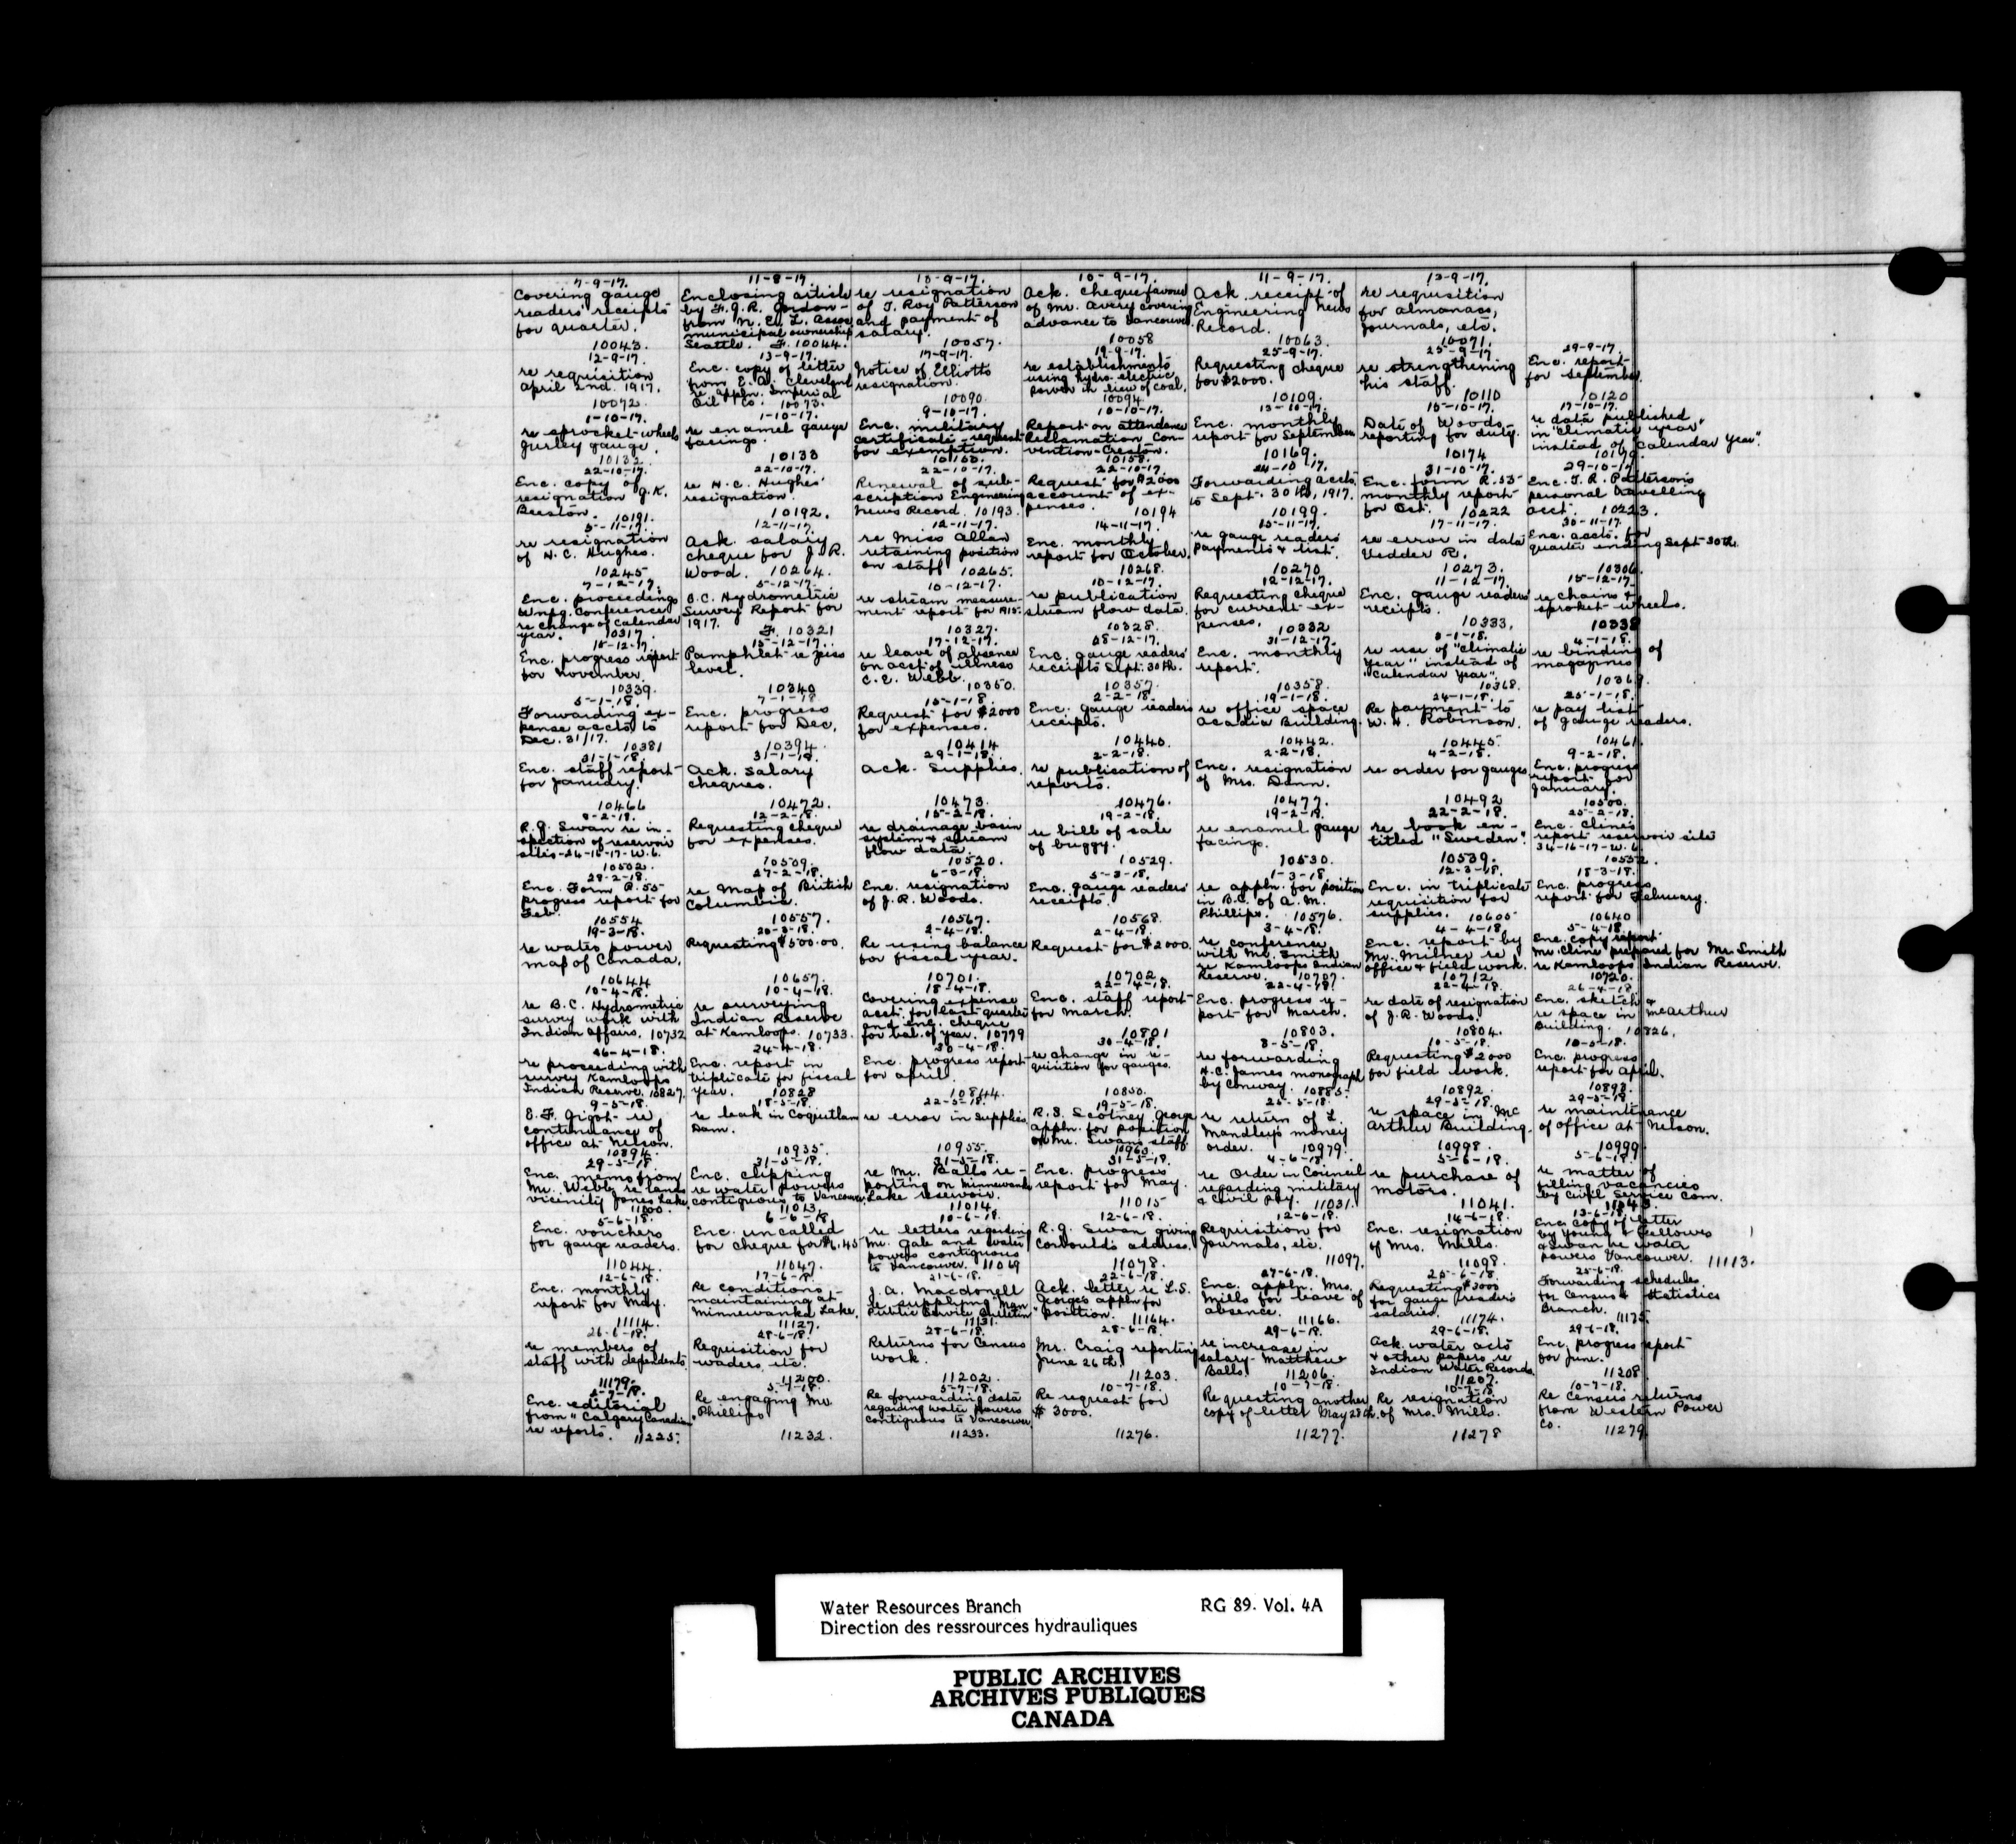 7-9-17.
Covering gauge
readers receipts
for quarter.
10043.
11-8-17
Enclosing article
by F.G.R. Gordon -
from N. E. L. Assoc
municipal ownership
Seattle. F. 10044.
13-9-17.
re resignation
of T. Roy Patterson
and payment of
salary.
10057.
10-9-17.
Ack. cheque favour
of Mr. Avery covering
advance to Vancouver.
10058
11-9-17.
Ack. receipt of
Engineering News
Record.
10063.
13-9-17.
re requisition
for almanacs,
journals, etc.
10071.
12-9-17.
re requisition
April 2nd. 1917.
10072.
13-9-17.
Enc. copy of letter
from E. A. Cleveland
re appln. Imperial
Oil Co. 10073.
17-9-17.
Notice of Elliotts
resignation.
10090.
19-9-17.
re establishments
using hydro-electric
power in lieu of coal.
10094.
25-9-17.
Requesting cheque
for $2000.
10109.
25-9-17
re strengthening
his staff.
10110
29-9-17.
Enc. report
for September.
10120
1-10-17.
re sprocket-wheels
Gurley gauge.
10132.
1-10-17.
re enamel gauge
facings.
10133
9-10-17.
Enc. military
certificate - request
for exemption.
10-10-17.
Report on attendance
Reclamation Con-
vention-Creston.
10158.
13-10-17.
Enc. monthly
report for September
10169.
15-10-17.
Date of Woods
reporting for duty.
10174
17-10-17.
re data published
in "climatic year"
instead of "Calendar Year".
10179
22-10-17.
Enc. copy of
resignation G.K.
Beeston. 10191.
22-10-17.
re H.C. Hughes'
resignation.
10192.
22-10-17.
Renewal of sub-
scription Engineering
News Record. 10193.
22-10-17.
Request for $2000
account of ex-
penses. 10194
24-10-17.
Forwarding accts.
to Sept. 30th, 1917.
10199.
31-10-17.
Enc. form R.53-
monthly report
for Oct. 10222
29-10-17
Enc. T.R. Patterson's
personal travelling
acct. 10223.
5-11-17.
re resignation
of H.C. Hughes.
10245
12-11-17.
Ack. salary
cheque for J.R.
Wood. 10264.
12-11-17.
re Miss Allan
retaining position
on staff 10265.
14-11-17.
Enc. monthly
report for October.
10268.
15-11-17.
re gauge readers'
payments & list.
10270
17-11-17.
re error in data
Vedder R.
10273.
30-11-17.
Enc. accts. for
quarter ending Sept 30th.
10306.
7-12-17.
Enc. proceedings
Wnpg. Conference
re change of calendar
year. 10317.
5-12-17.
B.C. Hydrometric
Survey Report for
1917.
F. 10321
10-12-17.
re stream measure-
ment report for 1915.
10327.
10-12-17.
re publication
stream flow data.
10328.
12-12-17.
Requesting cheque
for current ex-
penses. 10332
11-12-17.
Enc. gauge readers'
receipts.
10333.
15-12-17.
re chains &
sprocket wheels.
10338
15-12-17
Enc. progress report
for November.
10339.
15-12-17.
Pamphlet re
level.
10340
17-12-17.
re leave of absence
on acct of illness
C.E. Webb.
10350.
28-12-17.
Enc. gauge readers'
receipts Sept. 30th.
10357.
31-12-17.
Enc. monthly
report.
10358.
3-1-18.
re use of "climatic
year" instead of
"Calendar Year".
10368.
4-1-18.
re binding of
magazines
5-1-18.
Forwarding ex-
pense accts. to
Dec. 31/17.
10381
7-1-18
Enc. progress
report for Dec.
10394.
15-1-18.
Request for $2000
for expenses.
10414
2-2-18.
Enc. gauge readers
receipts.
10440.
19-1-18.
re office space
Acadia Building.
10442.
24-1-18.
Re payment to
W. H. Robinson.
10445.
25-1-18.
re pay list
of gauge readers.
10461.
31-1-18.
Enc. staff report
for January.
10466
31-1-18.
Ack. salary
cheques.
10472.
29-1-18.
Ack. supplies.
10473.
2-2-18.
re publication of
reports.
10476.
2-2-18.
Enc. resignation
of Mrs. Dann.
10477.
4-2-18.
re order for gauges
10492
9-2-18.
Enc. progress
report for
January.
10500.
8-2-18.
R.G. Swan re in-
spection of reservoir
sites-34-16-17-W.6.
10502.
12-2-18.
Requesting cheque
for expenses.
10509.
15-2-18.
re drainage basin
system & stream
flow data.
10520.
19-2-18.
re bill of sale
of buggy.
10529.
19-2-18.
re enamel gauge
facings.
10530.
22-2-18.
re book en-
titled "Sweden".
10539.
25-2-18.
Enc. Cline's
report reservoir site
34-16-17-W.6
10552.
28-2-18.
Enc. Form R.53-
progress report for
Feb.
10554
27-2-18.
re Map of British
Columbia.
10557.
6-3-18.
Enc. resignation
of J.R. Woods.
10567.
5-3-18.
Enc. gauge readers'
receipts.
10568.
1-3-18.
re appln. for position
in B.C. of A.M.
Phillips. 10576.
12-3-18.
Enc. in triplicate
requisition for
supplies. 10605
18-3-18.
Enc. progress
report for February.
10640
19-3-18.
re water power
map of Canada.
10644
20-3-18.
Requesting $500.00.
10657.
2-4-18.
Re using balance
for fiscal year.
10701.
2-4-18.
Request for $2000.
10702
3-4-18.
re conference
with Mr. Smith
re Kamloops Indian
Reserve. 10707.
4-4-18.
Enc. report by
Mr. Milner re
office & field work.
10712.
5-4-18.
Enc. copy report
Mr. Cline prepared for Mr. Smith
re Kamloops Indian Reserve.
10720.
10-4-18.
re B.C. Hydrometric
survey work with
Indian Affairs. 10732
10-4-18.
re surveying
Indian Reserve
at Kamloops. 10733.
18-4-18.
Covering expense
acct. for last quarter
and enc. cheque
for bal. of year. 10779
22-4-18.
Enc. staff report
for March.
10801
22-4-18.
Enc. progress re-
port for March.
10803.
22-4-18.
re date of resignation
of J.R. Woods.
10804.
26-4-18
Enc. sketch &
re space in McArthur
Building. 10826.
26-4-18.
re proceeding with
survey Kamloops
Indian Reserve. 10827.
24-4-18.
Enc. report in
triplicate for fiscal
year. 10828
30-4-18.
Enc. progress report
for April.
10844.
30-4-18.
re change in re-
quisition for gauges.
10850.
8-5-18.
re forwarding
H.C. James monograph
by Conway. 10885.
10-5-18.
Requesting $2000
for field work.
10892
10-5-18.
Enc. progress
report for April.
10893.
9-5-18.
E.F. Gigot re
continuance of
office at Nelson.
10894.
18-5-18.
re leak in Coquitlam
Dam.
10935
22-5-18.
re error in supplies
10955.
19-5-18.
R.S. Scotney George
appln. for position
on Mr. Swans staff
10960.
25-5-18.
re return of L.
Mandley's money
order. 10979.
29-5-18
re space in Mc
Arthur Building.
10998.
29-5-18
re maintenance
of office at Nelson.
10999.
29-5-18
Enc. memo from
Mr. Webb re lands
vicinity Jones Lake.
11000.
31-5-18.
Enc. clipping
re water powers
contiguous to Vancouver.
11013.
31-5-18.
re Mr. Balls re-
porting on Minnewanka
Lake reservoir.
11014
31-5-18.
Enc. progress
report for May.
11015
4-6-18.
re Order in Council
regarding military
& Civil pay. 11031.
5-6-18.
re purchase of
motors.
11041.
5-6-18.
re matter of
filling vacancies
by Civil Service Com.
11043.
5-6-18.
Enc. vouchers
for gauge readers.
11044.
6-6-18
Enc. uncalled
for cheque for $6.45
11047.
10-6-18.
re letters regarding
Mr. Gale and water
powers contiguous
to Vancouver. 11069
12-6-18.
R.G. Swan giving
Corbould's address.
11078.
12-6-18.
Requisition for
Journals, etc.
11097.
14-6-18.
Enc. resignation
of Mrs. Mills.
11098.
13-6-18
Enc. copy of letter
by Young & Fellowes
& Swan re water
powers Vancouver. 11113.
12-6-18.
Enc. monthly
report for May.
11114.
17-6-18
Re conditions
maintaining at
Minnewanka Lake.
11127.
21-6-18.
J.A. Macdonell
re supplying "Man
Public Service Bulletin"
11131.
22-6-18.
Ack. letter re L.S.
Georges appln for
position.
11164.
27-6-18.
Enc. appln. Mrs.
Mills for leave of
absence.
11166.
25-6-18.
Requesting $3000
for gauge readers
salaries.
11174.
25-6-18.
Forwarding schedules
for Census & Statistics
Branch.
11175.
26-6-18.
re members of
staff with dependents
11179.
28-6-18.
Requisition for
waders, etc.
11200.
28-6-18.
Returns for Census
work.
11202.
28-6-18.
Mr. Craig reporting
June 26th.
11203.
29-6-18.
re increase in
salary - Matthew
Balls. 11206.
29-6-18.
Ack. water acts
& other papers re
Indian Water Records.
11207.
29-6-18.
Enc. progress report
for June.
11208
2-7-18.
Enc. editorial
from "Calgary Canadian"
re reports. 11225.
5-7-18.
Re engaging Mr.
Phillips
11232.
5-7-18.
Re forwarding data
regarding water powers
contiguous to Vancouver.
11233.
10-7-18.
Re request for
$3000.
11276.
10-7-18.
Requesting another
copy of letter May 28th.
11277.
10-7-18.
Re resignation
of Mrs. Mills.
11278
10-7-18.
Re Census returns
from Western Power
Co.
11279
Water Resources Branch RG 89. Vol. 4A
Direction des ressrources hydrauliques
PUBLIC ARCHIVES
ARCHIVES PUBLIQUES
CANADA